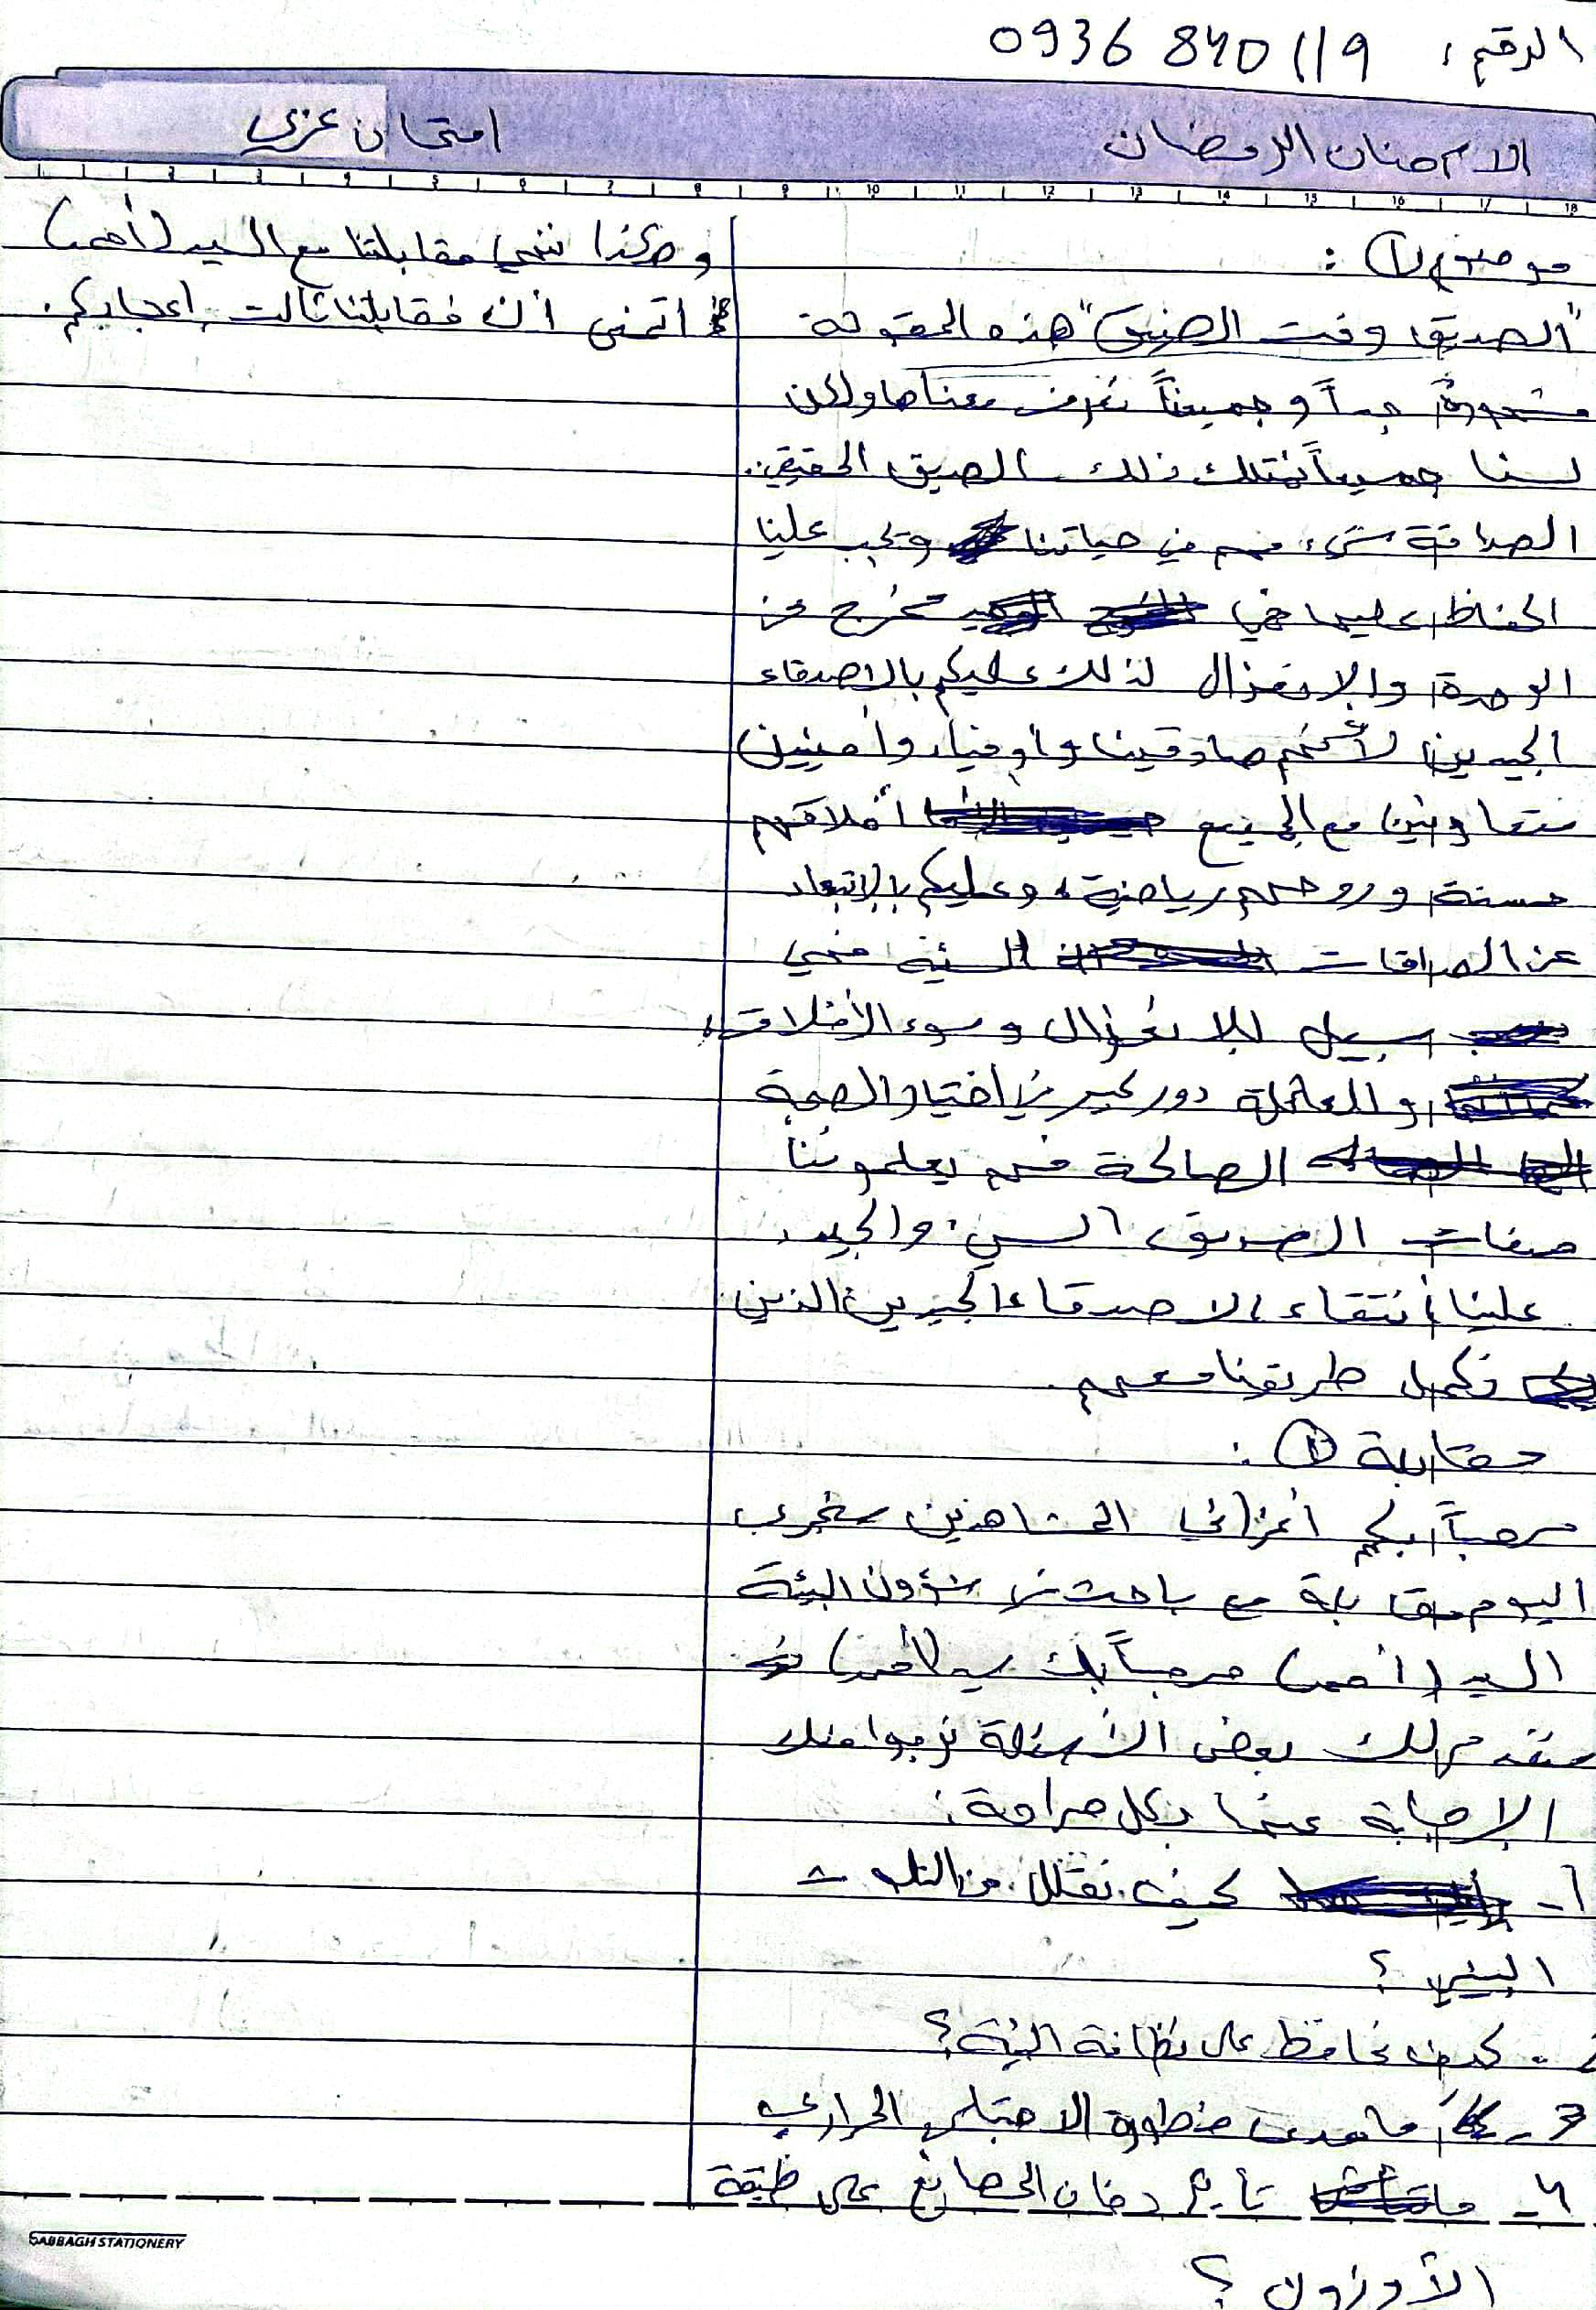 الرقم: 0936 840 119
امتحان عربي
موضوع ①:
"الصديق وقت الضيق" هذه المقولة
مشهورة جداً وجميعناً نعرف معناها ولكن
لسنا جميعاً نمتلك ذلك الصديق الحقيقي.
الصداقة شيء مهم في حياتنا ويجب علينا
الحفاظ عليها فهي تخرج من
الوحدة والانعزال لذلك عليكم بالاصدقاء
الجيدين لأنهم صادقين وأوفياء وأمينين
متعاونين مع الجميع أخلاقهم
حسنة وروحهم رياضية، وعليكم بالإبتعاد
عن الصداقات السيئة فهي
سبيل للإنعزال وسوء الأخلاق،
وللعائلة دور كبير في اختيار الصحبة
الصالحة فهم يعلموننا
صفات الصديق السيء والجيد،
علينا انتقاء الاصدقاء الجيدين الذين
نكمل طريقنا معهم.
مقابلة ①:
مرحباً بكم أعزائي المشاهدين سنجري
اليوم مقابلة مع باحث في شؤون البيئة
السيد (أحمد) مرحباً بك سيد (أحمد)
سنقدم لك بعض الأسئلة نرجوا منك
الإجابة عنها بكل صراحة:
1- كيف نقلل من التلوث
البيئي؟
2- كيف نحافظ على نظافة البيئة؟
3- ما مدى خطورة الاحتباس الحراري
4- ما تأثير دخان المصانع على طبقة
الأوزون؟
وهكذا ننهي مقابلتنا مع السيد (أحمد)
أتمنى أن مقابلتنا نالت إعجابكم.
SABBAGH STATIONERY